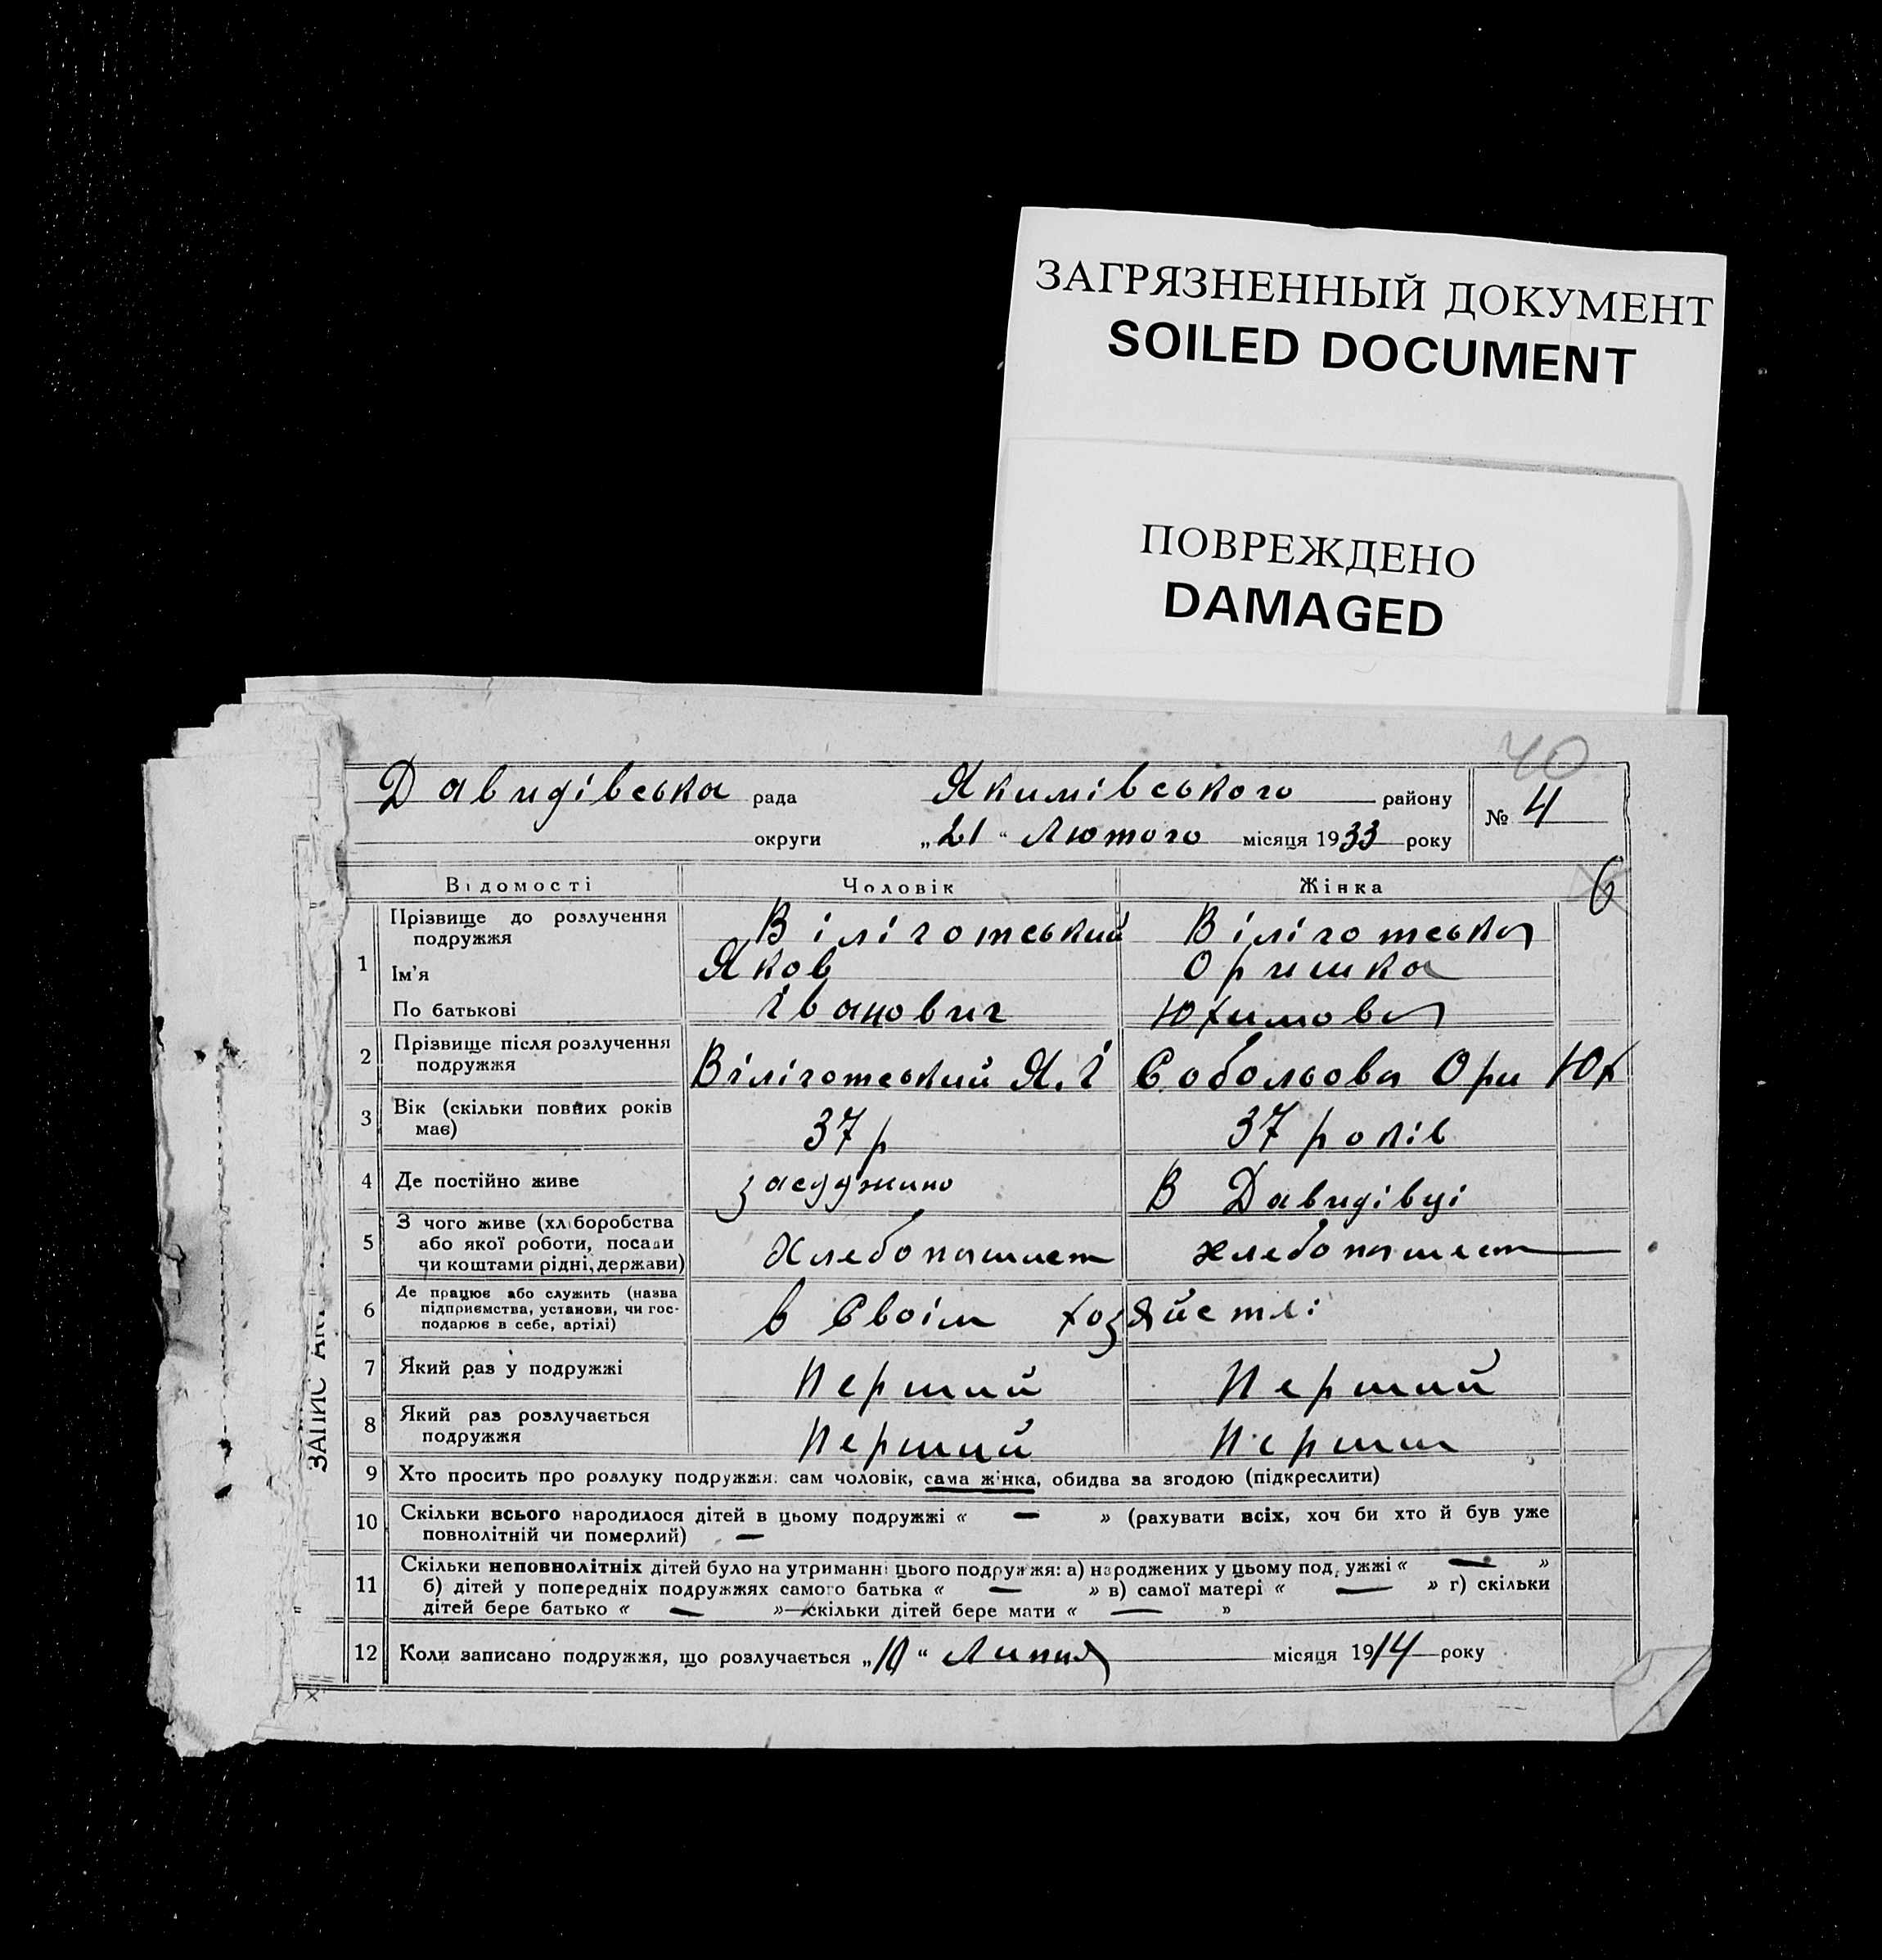 ЗАГРЯЗНЕННЫЙ ДОКУМЕНТ
SOILED DOCUMENT
ПОВРЕЖДЕНО
DAMAGED
40
Давидівська рада Якимівського району № 4
округи „21“ Лютого місяця 1933 року
Відомості Чоловік Жінка 6
1 Прізвище до розлучення подружжя Віліготський Віліготська
Ім'я Яков Оришка
По батькові Іванович Юхимовна
2 Прізвище після розлучення подружжя Віліготський Я. І Собольова Ори Юх
3 Вік (скільки повних років має) 37 р 37 років
4 Де постійно живе засуджино В Давидівці
5 З чого живе (хліборобства або якої роботи, посади чи коштами рідні, держави) Хлебопашест хлебопашест
6 Де працює або служить (назва підприємства, установи, чи господарює в себе, артілі) в Своім хозяйстві
7 Який раз у подружжі Перший Перший
8 Який раз розлучається подружжя Перший Перши
9 Хто просить про розлуку подружжя: сам чоловік, сама жінка, обидва за згодою (підкреслити)
10 Скільки всього народилося дітей в цьому подружжі « — » (рахувати всіх, хоч би хто й був уже
повнолітній чи померлий) —
11 Скільки неповнолітніх дітей було на утриманні цього подружжя: а) народжених у цьому подружжі « — »
б) дітей у попередніх подружжях самого батька « — » в) самої матері « — » г) скільки
дітей бере батько « — » скільки дітей бере мати « — »
12 Коли записано подружжя, що розлучається „10“ Липня місяця 1914 року
ЗАПИС АК